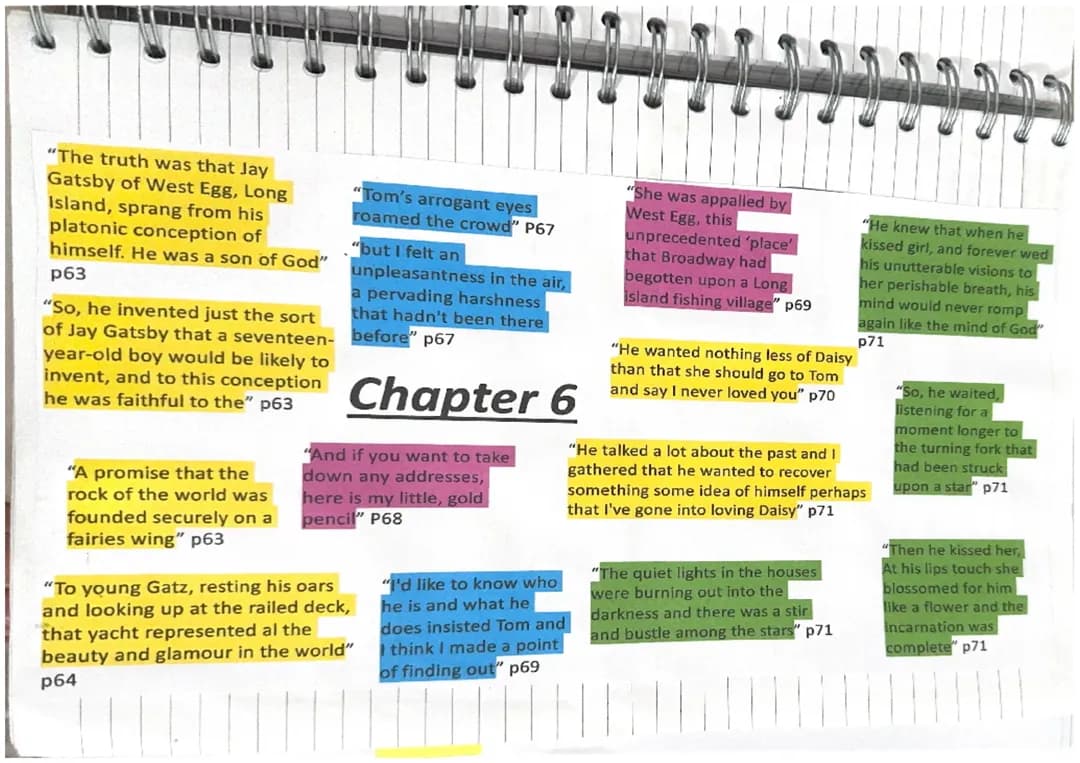 “The truth was that Jay
Gatsby of West Egg, Long
Island, sprang from his
platonic conception of
himself. He was a son of God”
p63
“So, he invented just the sort
of Jay Gatsby that a seventeen-
year-old boy would be likely to
invent, and to this conception
he was faithful to the” p63
“A promise that the
rock of the world was
founded securely on a
fairies wing” p63
“To young Gatz, resting his oars
and looking up at the railed deck,
that yacht represented al the
beauty and glamour in the world”
p64
“Tom’s arrogant eyes
roamed the crowd” P67
“but I felt an
unpleasantness in the air,
a pervading harshness
that hadn't been there
before” p67
Chapter 6
“And if you want to take
down any addresses,
here is my little, gold
pencil” P68
“I'd like to know who
he is and what he
does insisted Tom and
I think I made a point
of finding out” p69
“She was appalled by
West Egg, this
unprecedented ‘place’
that Broadway had
begotten upon a Long
island fishing village” p69
“He wanted nothing less of Daisy
than that she should go to Tom
and say I never loved you” p70
“He talked a lot about the past and I
gathered that he wanted to recover
something some idea of himself perhaps
that I've gone into loving Daisy” p71
“The quiet lights in the houses
were burning out into the
darkness and there was a stir
and bustle among the stars” p71
“He knew that when he
kissed girl, and forever wed
his unutterable visions to
her perishable breath, his
mind would never romp
again like the mind of God”
p71
“So, he waited,
listening for a
moment longer to
the turning fork that
had been struck
upon a star” p71
“Then he kissed her,
At his lips touch she
blossomed for him
like a flower and the
incarnation was
complete” p71